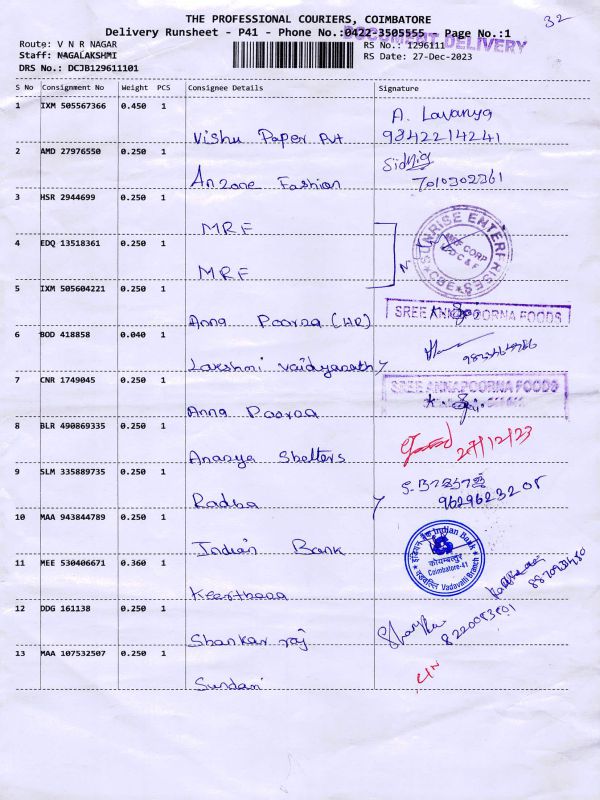 THE PROFESSIONAL COURIERS, COIMBATORE
32
Delivery Runsheet - P41 - Phone No.:0422-3505555 - Page No.:1
DOCUMENT DELIVERY
Route: V N R NAGAR
RS No.: 1296111
Staff: NAGALAKSHMI
RS Date: 27-Dec-2023
DRS No.: DCJB129611101
S No Consignment No Weight PCS Consignee Details Signature
1 IXM 505567366 0.450 1
A. Lavanya
Vishu Paper Pvt 9842214241
2 AMD 27976550 0.250 1
Anzone Fashion 7010302361
3 HSR 2944699 0.250 1
MRF
SUNRISE ENTERPRISES
MRF CORP
C & F
CBE
4 EDQ 13518361 0.250 1
MRF
5 IXM 505604221 0.250 1
Anna Poorna (HR)
SREE ANNAPOORNA FOODS
6 BOD 418858 0.040 1
Lakshmi Vaidyanathy
7 CNR 1749045 0.250 1
Anna Poorna
SREE ANNAPOORNA FOODS
8 BLR 490869335 0.250 1
Ananya Shelters
27/12/23
9 SLM 335889735 0.250 1
Radha 9629623205
10 MAA 943844789 0.250 1
Indian Bank
इंडियन बैंक Indian Bank
कोयम्बत्तूर
Coimbatore-41
Vadavalli Branch
11 MEE 530406671 0.360 1
Keerthana
12 DDG 161138 0.250 1
Shankar raj
13 MAA 107532507 0.250 1
Sundari